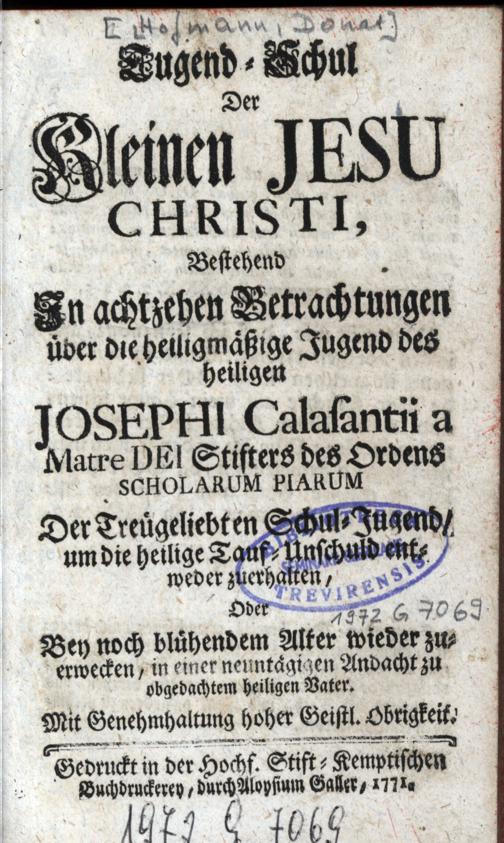 [Hofmann, Donat]
Tugend-Schul
Der
Kleinen JESU
CHRISTI,
Bestehend
In achtzehen Betrachtungen
über die heiligmäßige Jugend des
heiligen
JOSEPHI Calasantii a
Matre DEI Stifters des Ordens
SCHOLARUM PIARUM
Der Treügeliebten Schul-Jugend/
um die heilige Tauf-Unschuld ent-
weder zuerhalten,
TREVIRENSIS
Oder
1972 G 7069
Bey noch blühendem Alter wieder zu-
erwecken, in einer neuntägigen Andacht zu
obgedachtem heiligen Vater.
Mit Genehmhaltung hoher Geistl. Obrigkeit.
Gedruckt in der Hochf. Stift-Kemptischen
Buchdruckerey, durch Aloysium Galler, 1771.
1972 G 7069